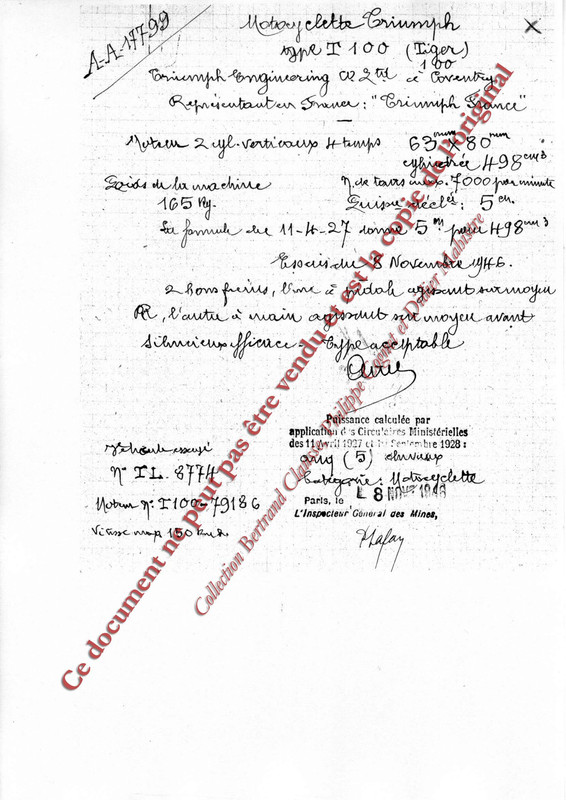 A-A-17799
Motocyclette Triumph
type T 100 (Tiger)
100
Triumph Engineering Co Ltd à Coventry
Représentant en France : "Triumph France"
Moteur 2 cyl. verticaux 4 temps 63 mm X 80 mm
cylindrée 498 cm3
Poids de la machine
165 Kg.
N. de tours max. 7000 par minute
Puiss. décl. : 5 cv.
La formule du 11-4-27 donne 5 pour 498 cm3
Essais du 8 Novembre 1946.
2 bons freins, l'un à pédale agissant sur moyeu
AR, l'autre à main agissant sur moyeu avant
Silencieux efficace - Type acceptable
Puissance calculée par
application des Circulaires Ministérielles
des 11 Avril 1927 et 1er Septembre 1928 :
cinq (5) chevaux
Catégorie : Motocyclette
Paris, le 8 NOV 1946
L'Inspecteur Général des Mines,
Véhicule essayé
N° TL. 8774
Moteur N° : T100-79186
Vitesse max 150 km/h
Ce document ne peut pas être vendu et est la copie de l'original
Collection Bertrand Philippe Cognet et Didier Mahistre